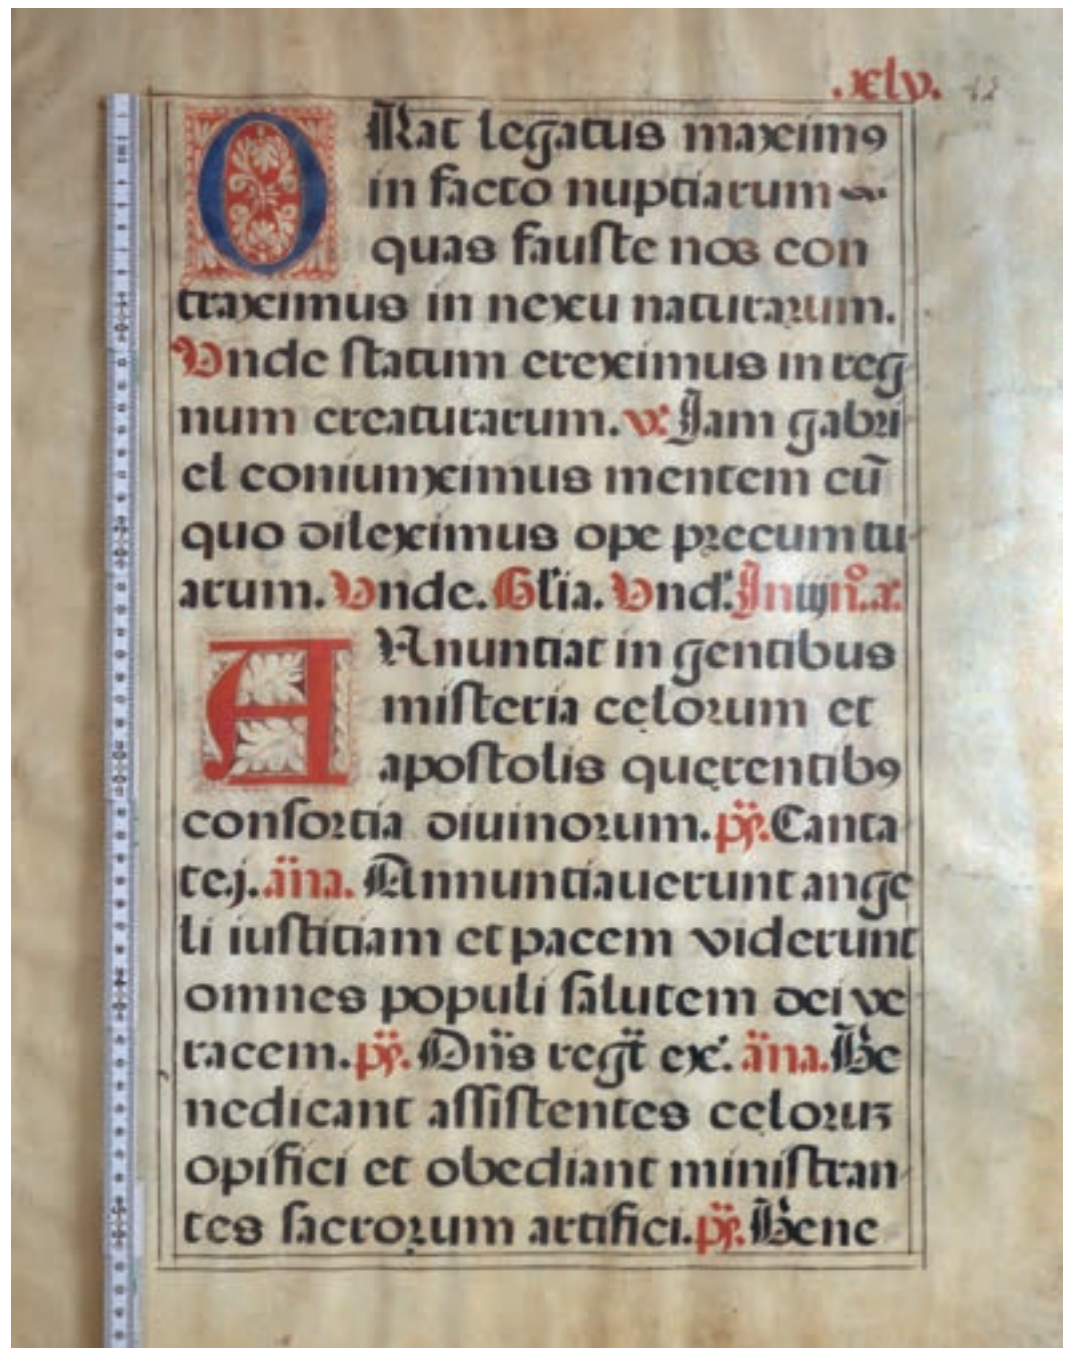 .xlv. 42
ORat legatus maximꝰ
in facto nuptiarum
quas fauſte nos con
traximus in nexu naturarum.
Vnde ſtatum ereximus in reg
num creaturarum. ℣ Jam gabri
el coniunximus mentem cū
quo dileximus ope precum tu
arum. Vnde. Gľia. Vnd̛.
ANuntiat in gentibus
miſteria cęlorum et
apoſtolis quęrentibꝰ
conſortia diuinorum. p̈s̈. Canta
te.j. än̈a. Annuntiauerunt ange
li iuſtitiam et pacem viderunt
omnes populi ſalutem dei ve
racem. p̈s̈. Dn̈s regt̄ ex̛. än̈a. Be
nedicant aſſiſtentes cęloruꝫ
opifici et obediant miniſtran
tes ſacrorum artifici. p̈s̈. Bene